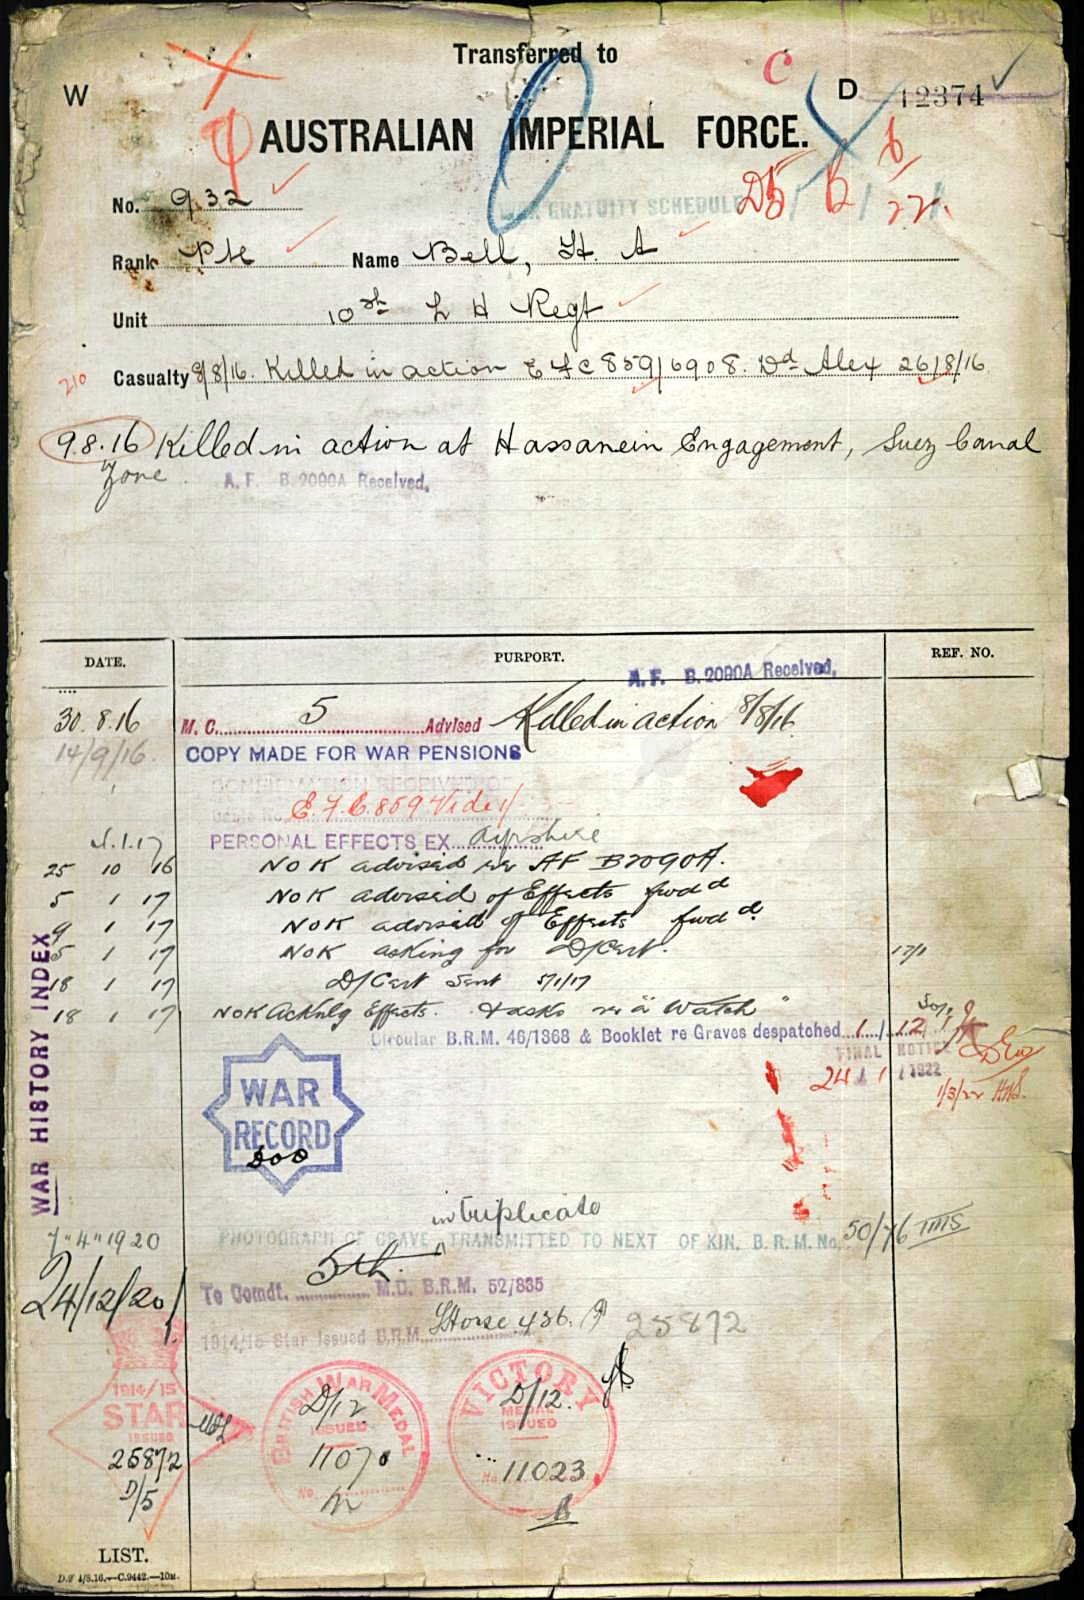 Transferred to
C
W
D 12374
AUSTRALIAN IMPERIAL FORCE.
No. 932
WAR GRATUITY SCHEDULE
Rank Pte Name Bell, H. A
Unit 10th L H Regt
210
Casualty 8/8/16. Killed in action E F C 859/6908. Dd Alex 26/8/16
9.8.16 Killed in action at Hassanein Engagement, Suez Canal
Zone
A. F. B. 2090A Received,
DATE. PURPORT. REF. NO.
A. F. B. 2090A Received,
30.8.16 M. C. 5 Advised Killed in action 8/8/16.
14/9/16 COPY MADE FOR WAR PENSIONS
E. F. C. 859
1.17 PERSONAL EFFECTS EX Ayrshire
25 10 16 NOK advised re AF B2090A.
5 1 17 NOK advised of Effects fwdd
9 1 17 NOK advised of Effects fwdd
5 1 17 NOK asking for D/Cert. 17/1
18 1 17 D/Cert Sent 5/1/17
18 1 17 NOK Acknlg Effects. & asks re a "Watch"
Circular B.R.M. 46/1368 & Booklet re Graves despatched 1/12/
FINAL NOTICE
24/1/1922
1/3/22
WAR HISTORY INDEX
WAR
RECORD
in triplicate
7"4"1920 PHOTOGRAPH OF GRAVE TRANSMITTED TO NEXT OF KIN. B. R. M. No. 50/76
24/12/20 To Comdt. 5th. M.D. B.R.M. 52/835
1914/15 Star Issued B.R.M. L Horse 436. 25872
1914/15
STAR
ISSUED
25872
D/5
BRITISH WAR MEDAL
D/12
ISSUED
11070
No.
VICTORY
D/12.
MEDAL
ISSUED
No. 11023
LIST.
D.F 4/8.16.—C.9442.—10m.